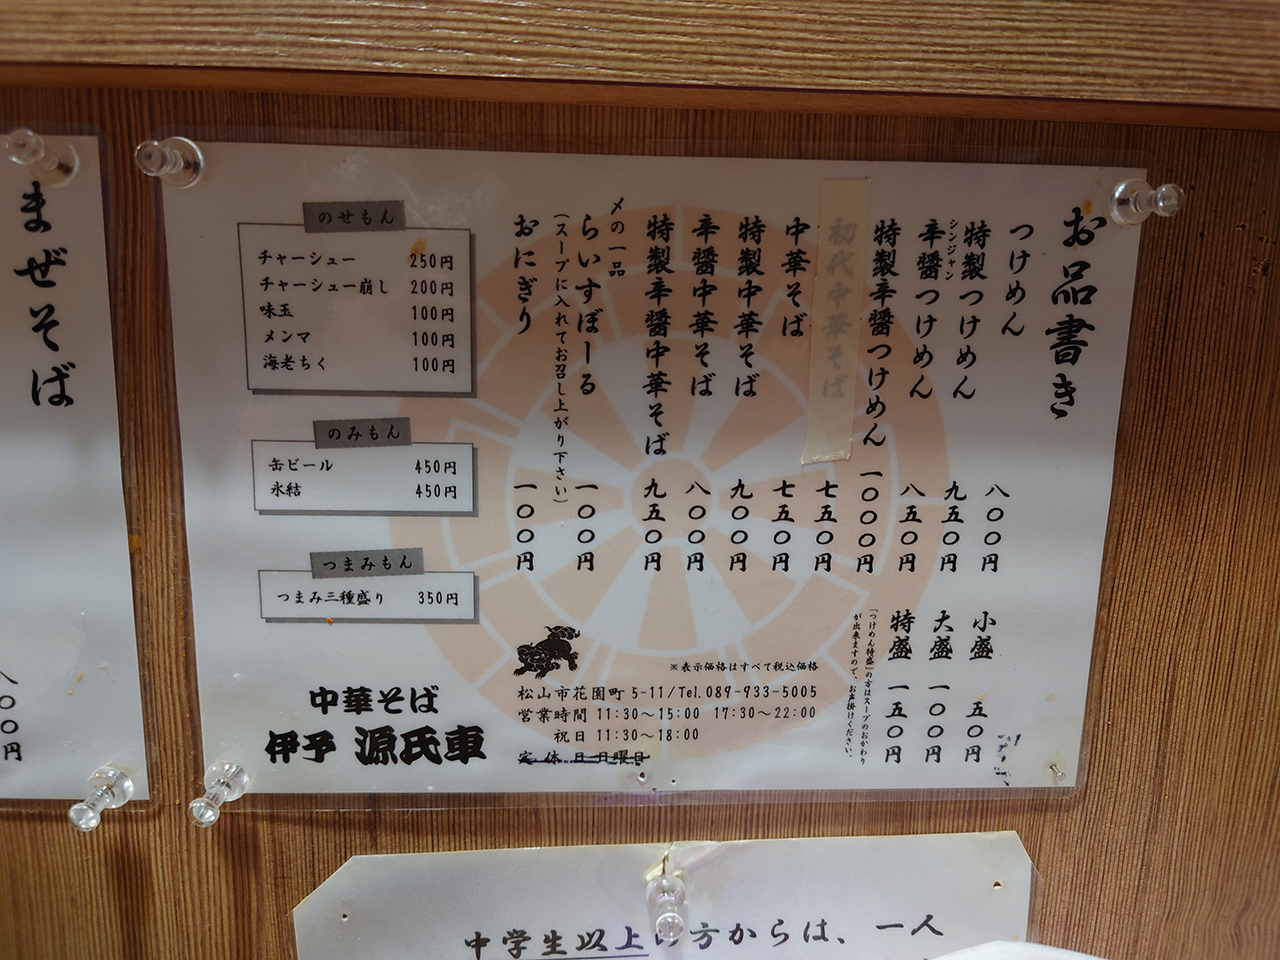 お品書き
つけめん 八〇〇円
特製つけめん 九五〇円
辛醤つけめん 八五〇円
シンジャン
特製辛醤つけめん 一〇〇〇円
初代中華そば 七五〇円
中華そば 七五〇円
特製中華そば 九〇〇円
辛醤中華そば 八〇〇円
特製辛醤中華そば 九五〇円
〆の一品
らいすぼーる 一〇〇円
(スープに入れてお召し上がり下さい)
おにぎり 一〇〇円
小盛 五〇円
大盛 一〇〇円
特盛 一五〇円
「つけめん特盛」の方はスープのおかわり
が出来ますので、お声掛けください。
のせもん
チャーシュー 250円
チャーシュー崩し 200円
味玉 100円
メンマ 100円
海老ちく 100円
のみもん
缶ビール 450円
氷結 450円
つまみもん
つまみ三種盛り 350円
※表示価格はすべて税込価格
松山市花園町5-11/Tel.089-933-5005
営業時間 11:30〜15:00 17:30〜22:00
祝日 11:30〜18:00
定休日 月曜日
中華そば
伊予 源氏車
まぜそば
八〇〇円
中学生以上の方からは、一人